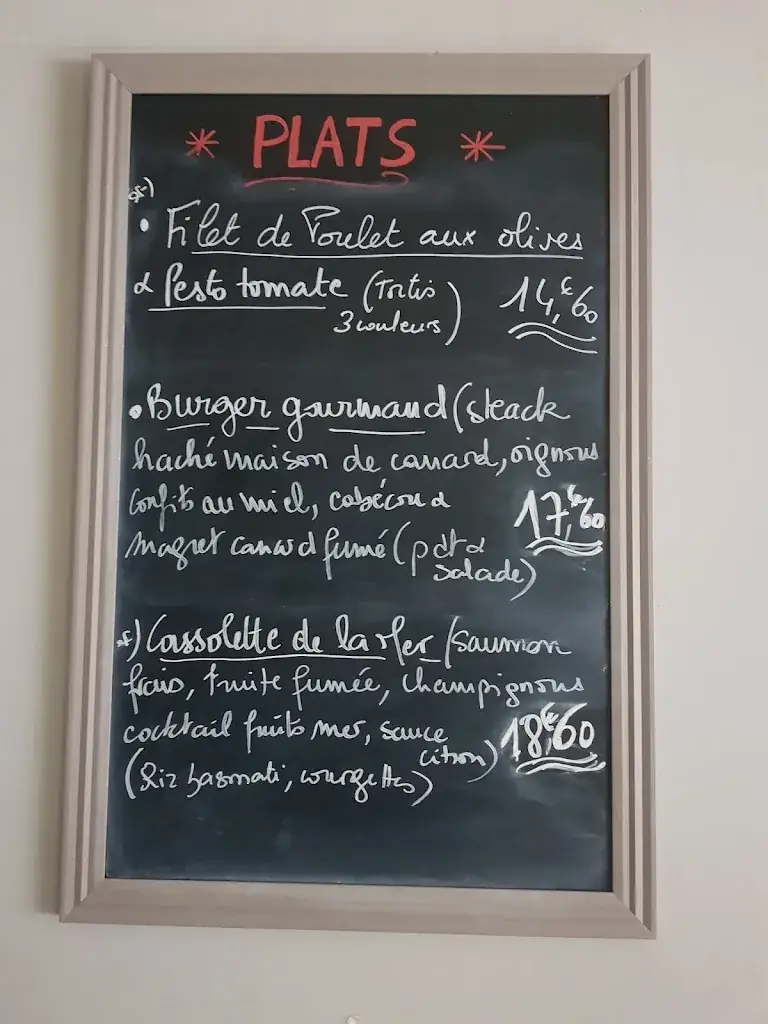 * PLATS *
• Filet de Poulet aux olives
& Pesto tomate (Tortis
3 couleurs)
14,€60
• Burger gourmand (steack
haché maison de canard, oignons
confits au miel, cabécou &
17,€60
magret canard fumé (pdt &
salade)
Cassolette de la Mer (saumon
frais, truite fumée, champignons
cocktail fruits mer, sauce
citron)
18,€60
(Riz basmati, courgettes)